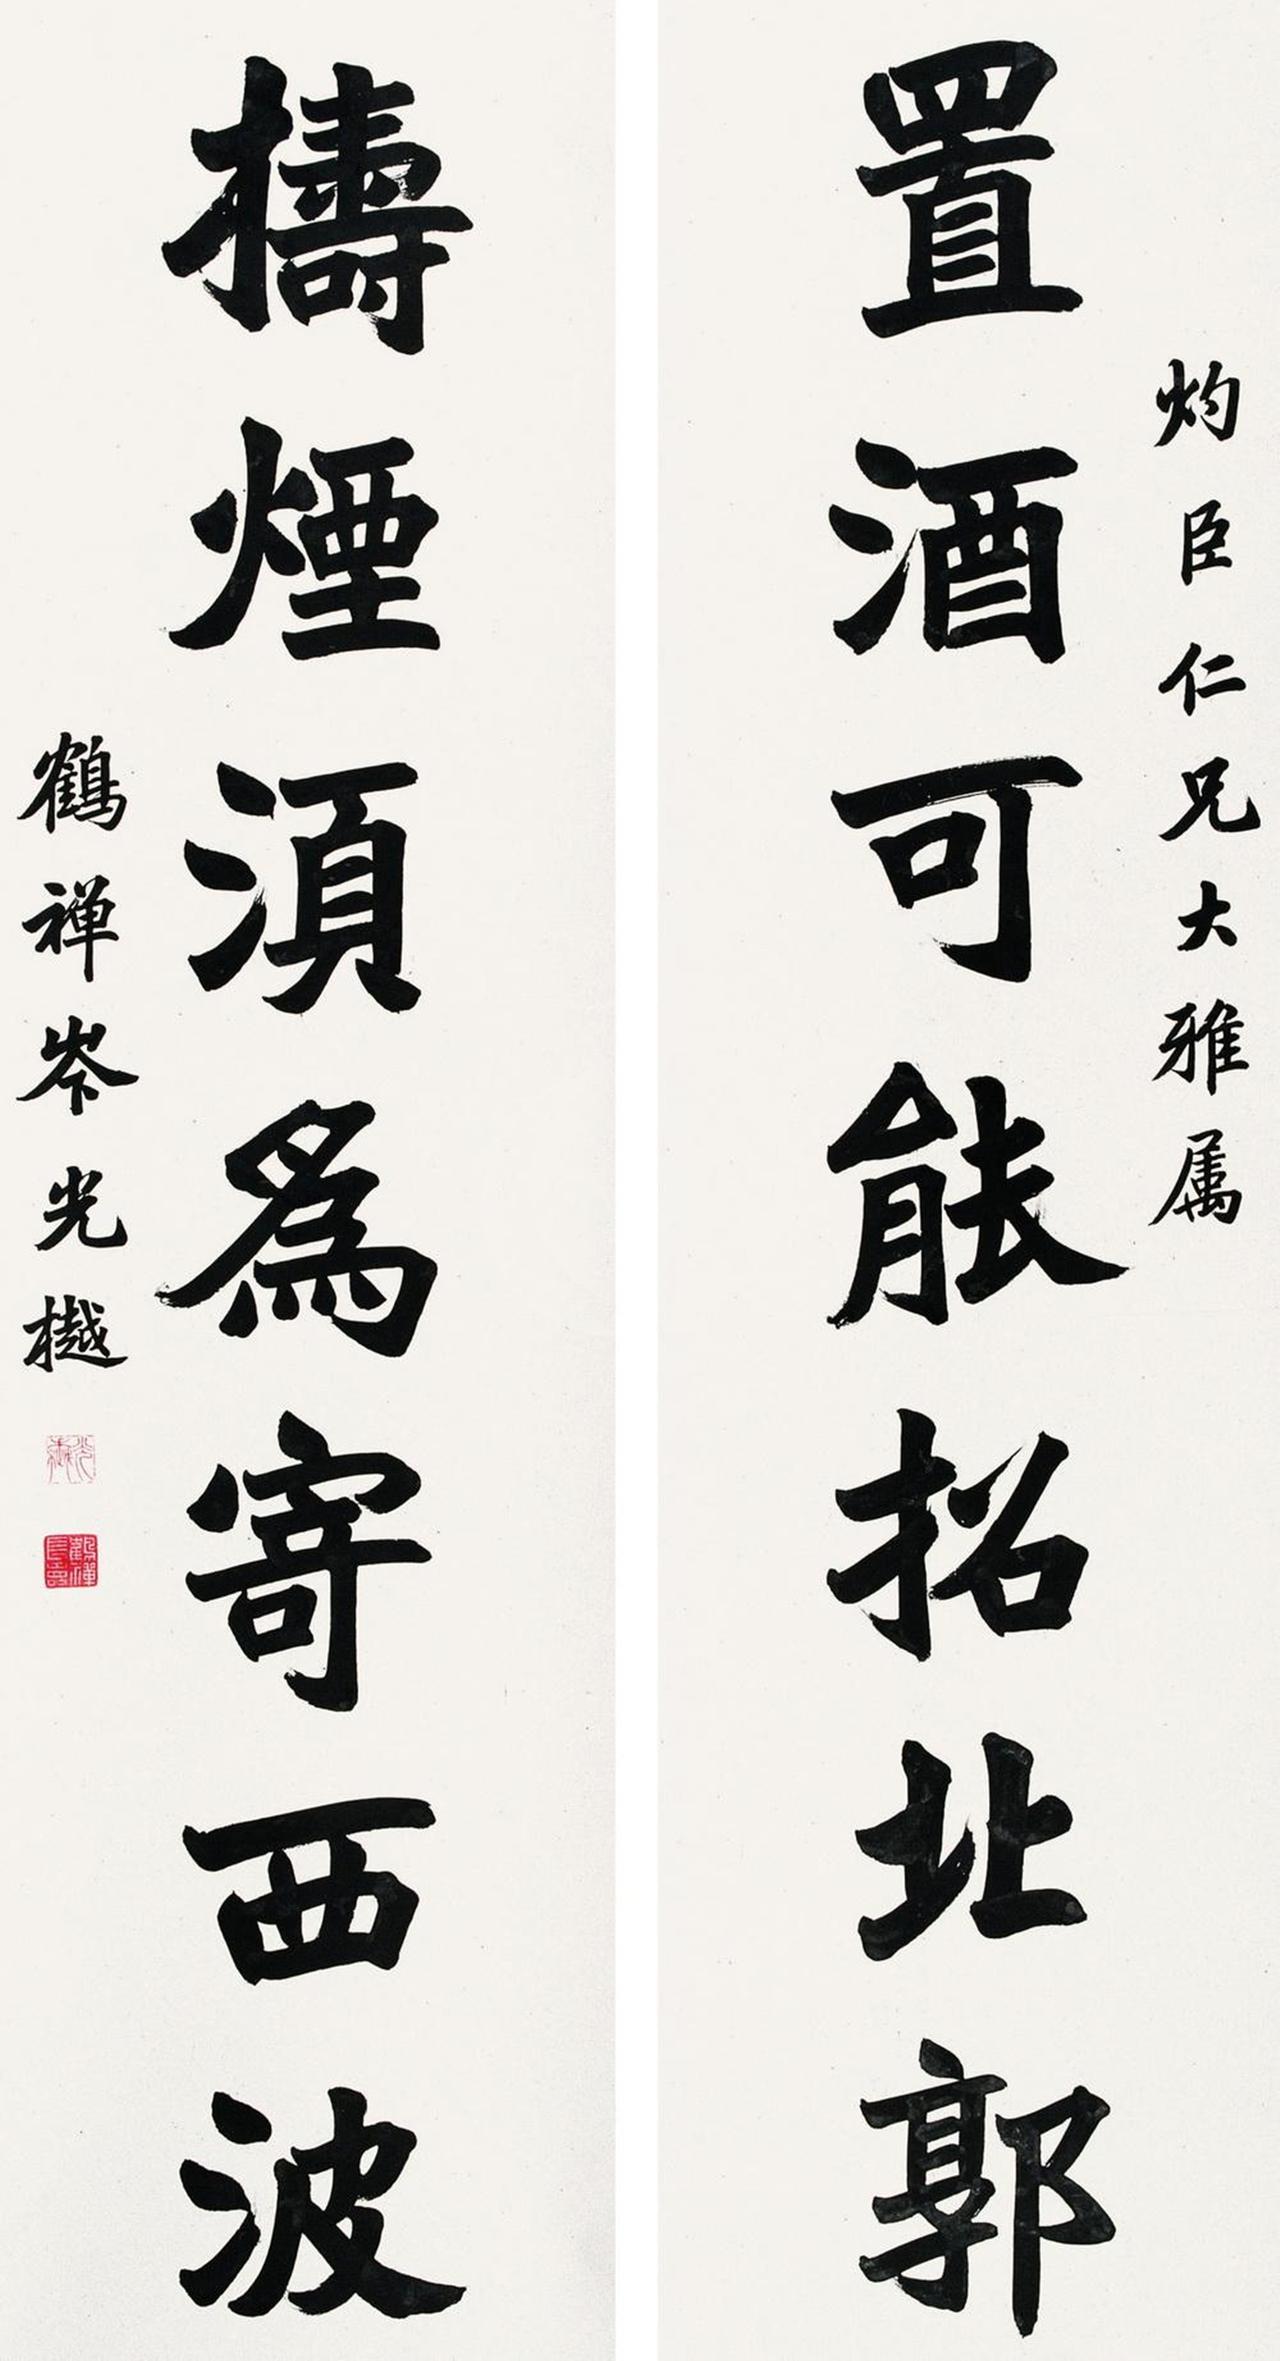 灼臣仁兄大雅属
置酒可能招北郭
擣煙湏爲寄西波
鶴禅岑光樾